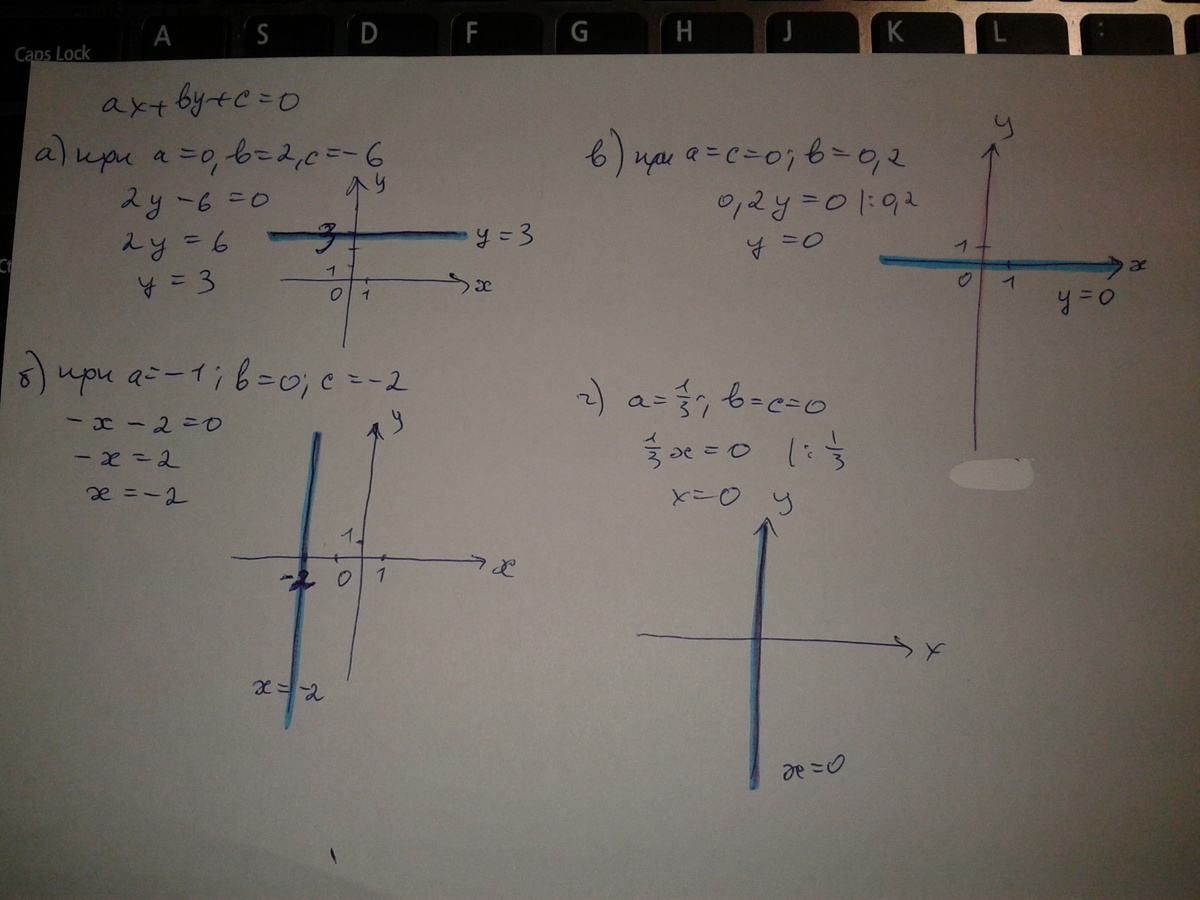 Caps Lock A S D F G H J K L :
ax+by+c=0
а) при a=0, b=2, c=-6
2y-6=0
2y=6
y=3
y
3
y=3
1
0 1
x
б) при a=-1; b=0; c=-2
-x-2=0
-x=2
x=-2
y
1
-2 0 1
x
x=-2
в) при a=c=0; b=0,2
0,2y=0 |:0,2
y=0
y
1
x
0 1
y=0
г) a=1/3; b=c=0
1/3x=0 |:1/3
x=0
y
x
x=0